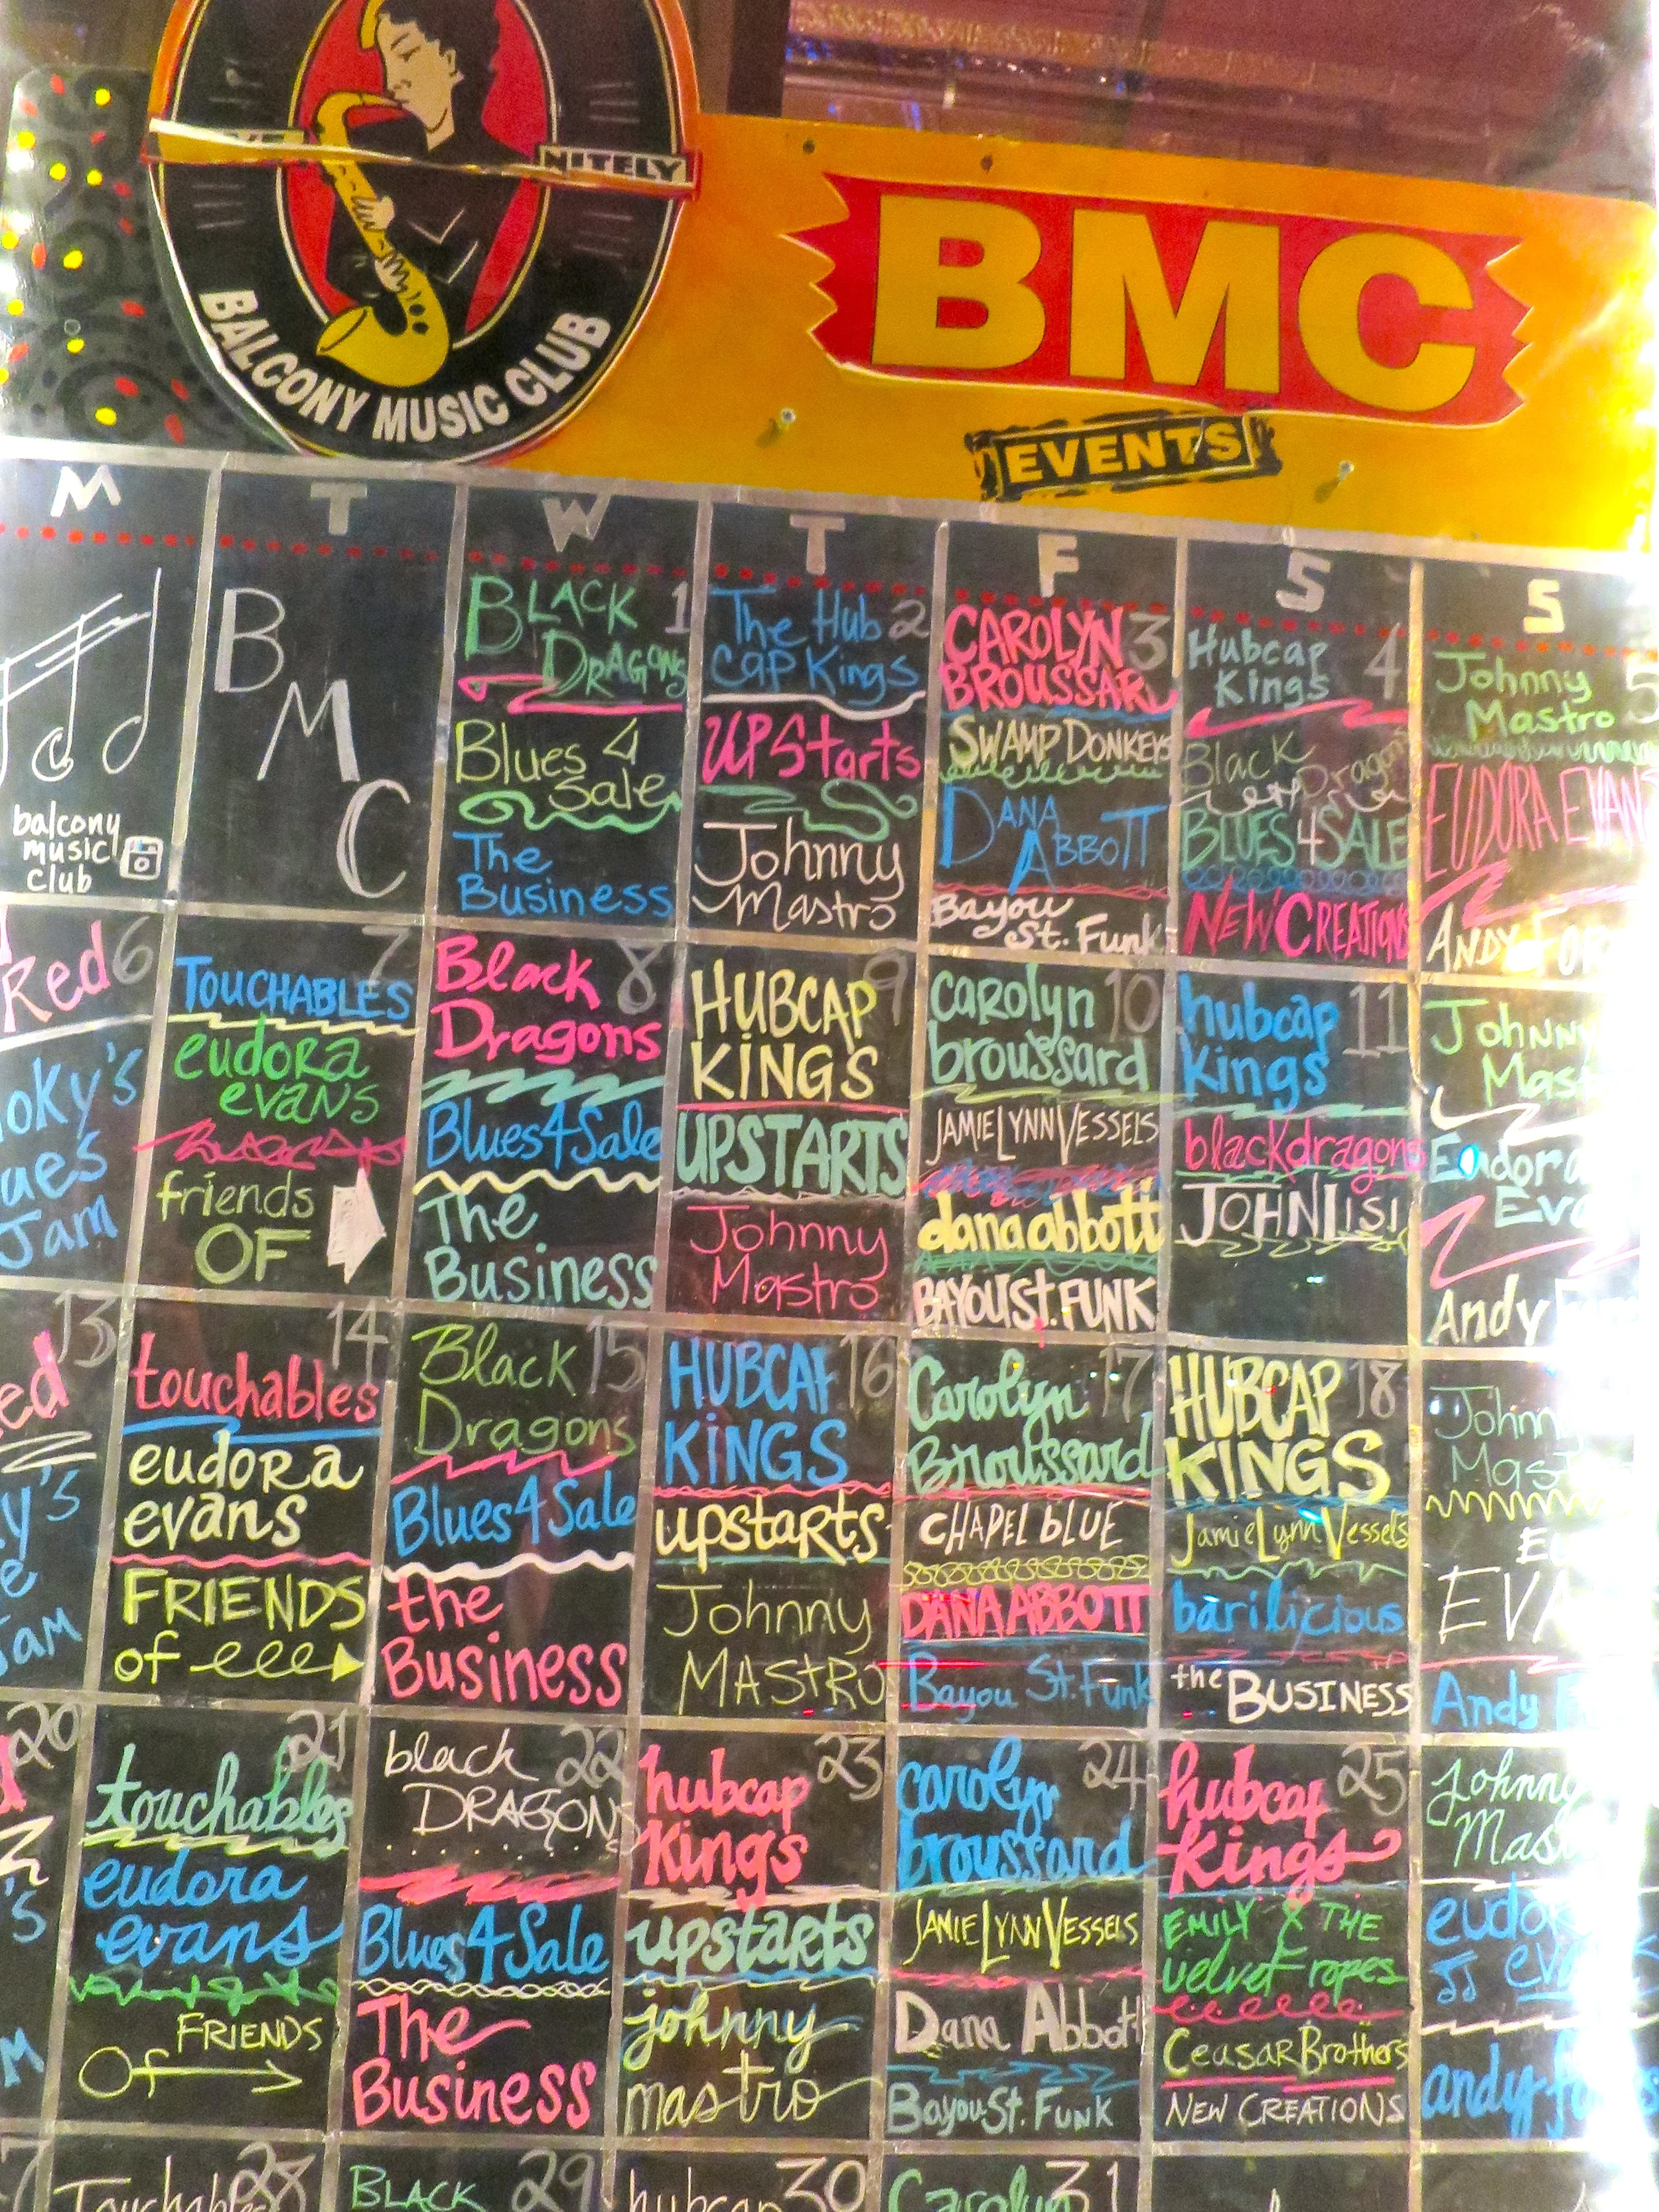 NITELY
BALCONY MUSIC CLUB
BMC
EVENTS
M T W T F S S
balcony
music
club
B
M
C
BLACK 1
DRAGONS
Blues 4
Sale
The
Business
The Hub 2
Cap Kings
UPStarts
Johnny
Mastro
CAROLYN 3
BROUSSARD
SWAMP DONKEYS
DANA
ABBOTT
Bayou
St. Funk
Hubcap 4
Kings
Black
Dragons
BLUES 4 SALE
NEW CREATIONS
Johnny 5
Mastro
EUDORA EVANS
ANDY
Red 6
oky's
ues
Jam
7
TOUCHABLES
eudora
evans
friends
OF
Black 8
Dragons
Blues 4 Sale
The
Business
HUBCAP 9
KINGS
UPSTARTS
Johnny
Mastro
carolyn 10
broussard
JAMIE LYNN VESSELS
dana abbott
BAYOU St. FUNK
hubcap 11
kings
black dragons
JOHN LISI
Johnny
Mas
Eudora
Eva
Andy
13
ed
y's
e
Jam
14
touchables
eudora
evans
FRIENDS
of
Black 15
Dragons
Blues 4 Sale
the
Business
HUBCAP 16
KINGS
upstarts
Johnny
MAStRO
Carolyn 17
Broussard
CHAPEL bLUE
DANA ABBOTT
Bayou St. Funk
HUBCAP 18
KINGS
Jamie Lynn Vessels
barilicious
the BUSINESS
Johnn
Mast
EVA
Andy
20
's
M
21
touchables
eudora
evans
FRIENDS
Of
black 22
DRAGONS
Blues 4 Sale
The
Business
hubcap 23
kings
upstarts
johnny
mastro
carolyn 24
broussard
JAMIE LYNN VESSELS
Dana Abbott
Bayou St. FUNK
hubcap 25
kings
EMILY & THE
velvet ropes
Ceasar Brothers
NEW CREATIONS
johnny
Mas
eudo
eva
andy
7
Touchables 28
BLACK 29
hubcap 30
Carolyn 31